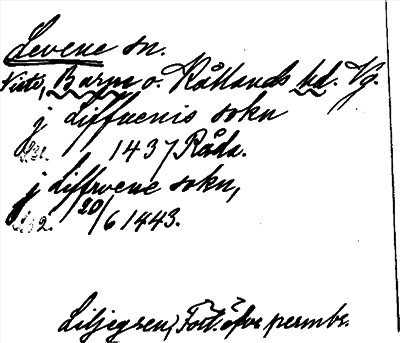 Levene sn.
Viste, Barne o. Kållands hd. Vg.
j Liffuenis sokn
1437 Råda.
j Liffwene sokn,
20/6 1443.
Liljegren, Fört. öfver permbr.